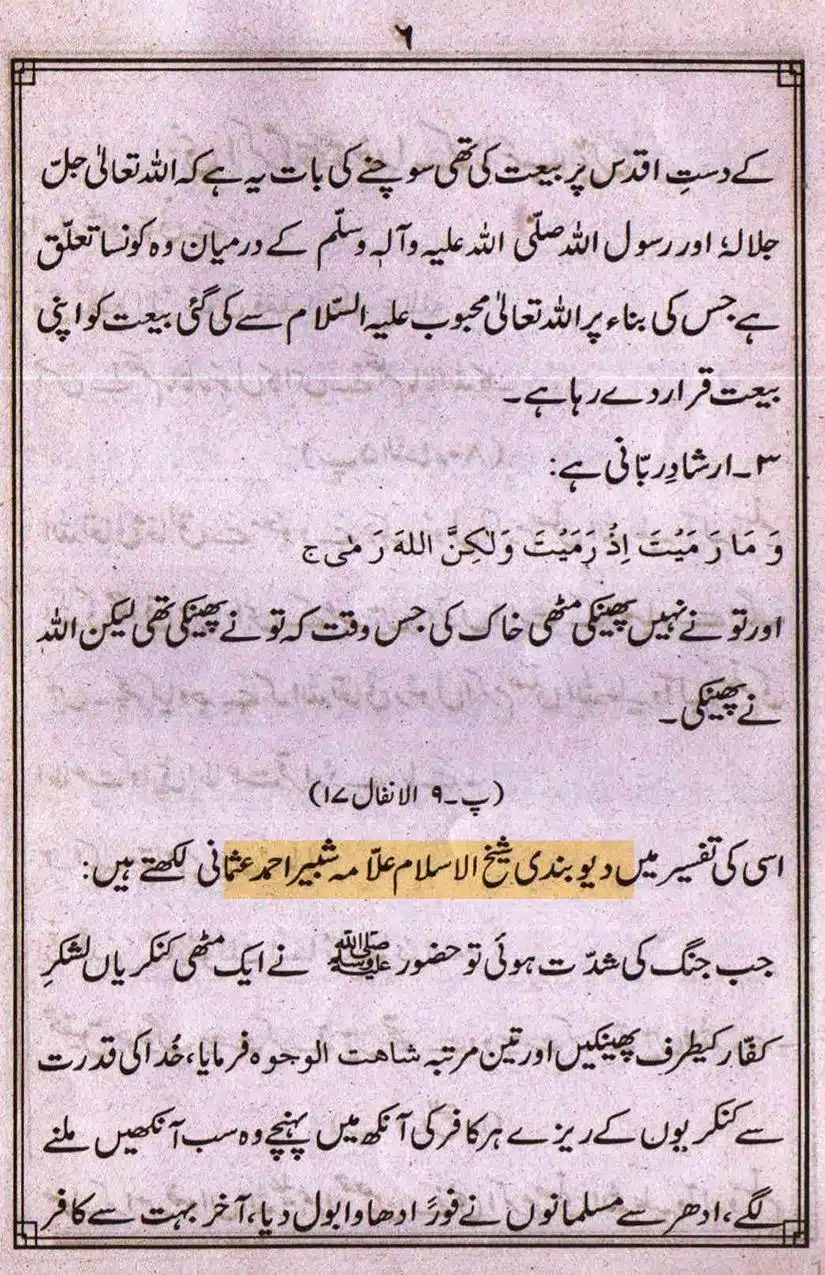 ٦
کے دستِ اقدس پر بیعت کی تھی سوچنے کی بات یہ ہے کہ اللہ تعالیٰ جلّ
جلالہٗ اور رسول اللہ صلّی اللہ علیہ وآلہٖ وسلّم کے درمیان وہ کونسا تعلّق
ہے جس کی بناء پر اللہ تعالیٰ محبوب علیہ السّلام سے کی گئی بیعت کو اپنی
بیعت قرار دے رہا ہے۔
۳۔ ارشادِ ربّانی ہے:
وَ مَا رَمَيْتَ اِذْ رَمَيْتَ وَلٰكِنَّ اللهَ رَمٰی ج
اور تو نے نہیں پھینکی مٹھی خاک کی جس وقت کہ تو نے پھینکی تھی لیکن اللہ
نے پھینکی۔
(پ۔۹ الانفال ۱۷)
اسی کی تفسیر میں دیوبندی شیخ الاسلام علّامہ شبیر احمد عثمانی لکھتے ہیں:
جب جنگ کی شدّت ہوئی تو حضور ﷺ نے ایک مٹھی کنکریاں لشکرِ
کفّار کیطرف پھینکیں اور تین مرتبہ شاھت الوجوہ فرمایا، خُدا کی قدرت
سے کنکریوں کے ریزے ہر کافر کی آنکھ میں پہنچے وہ سب آنکھیں ملنے
لگے، ادھر سے مسلمانوں نے فورًا دھاوا بول دیا، آخر بہت سے کافر